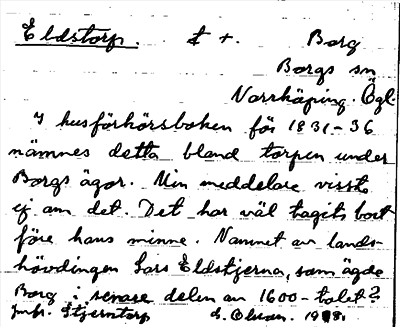 Eldstorp. t +. Borg
Borgs sn
Norrköping. Ögl.
I husförhörsboken för 1831-36
nämnes detta bland torpen under
Borgs ägor. Min meddelare visste
ej om det. Det har väl tagits bort
före hans minne. Namnet av lands-
hövdingen Lars Eldstjerna, som ägde
Borg i senare delen av 1600-talet?
Jmfr. Stjerntorp E. Olsson.